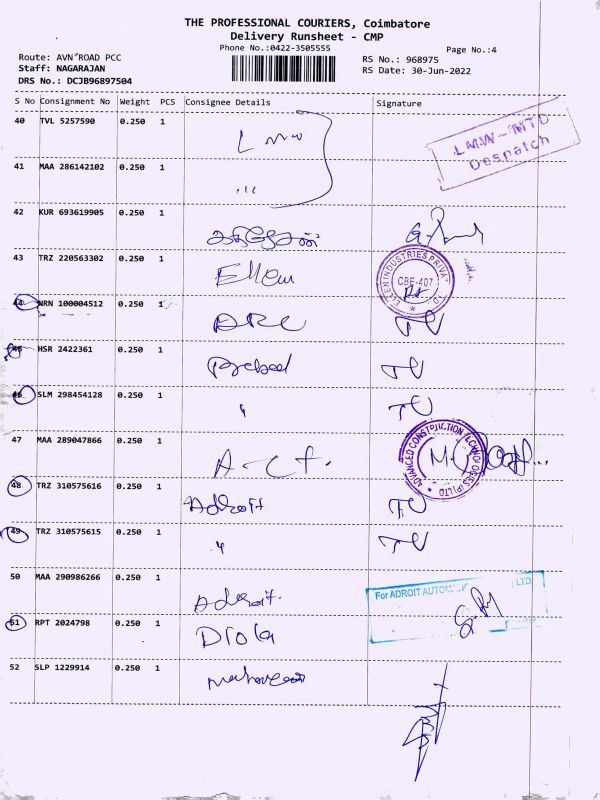 THE PROFESSIONAL COURIERS, Coimbatore
Delivery Runsheet - CMP
Phone No.:0422-3505555
Page No.:4
Route: AVN ROAD PCC
RS No.: 968975
Staff: NAGARAJAN
RS Date: 30-Jun-2022
DRS No.: DCJB96897504
S No Consignment No Weight PCS Consignee Details Signature
40 TVL 5257590 0.250 1 LMW
LMW-MTD
Despatch
41 MAA 286142102 0.250 1 ,,,
42 KUR 693619905 0.250 1
43 TRZ 220563302 0.250 1 Ellen
INDUSTRIES PRIVATE
CBE-407
44 NRN 100004512 0.250 1 TU
45 HSR 2422361 0.250 1 TU
46 SLM 298454128 0.250 1 " TU
47 MAA 289047866 0.250 1 A-Ct.
ADVANCED CONSTRUCTION TECHNOLOGIES (P) LTD
48 TRZ 310575616 0.250 1 Adroit TU
49 TRZ 310575615 0.250 1 " TU
50 MAA 290986266 0.250 1 Adroit.
For ADROIT AUTOM LTD
51 RPT 2024798 0.250 1
52 SLP 1229914 0.250 1